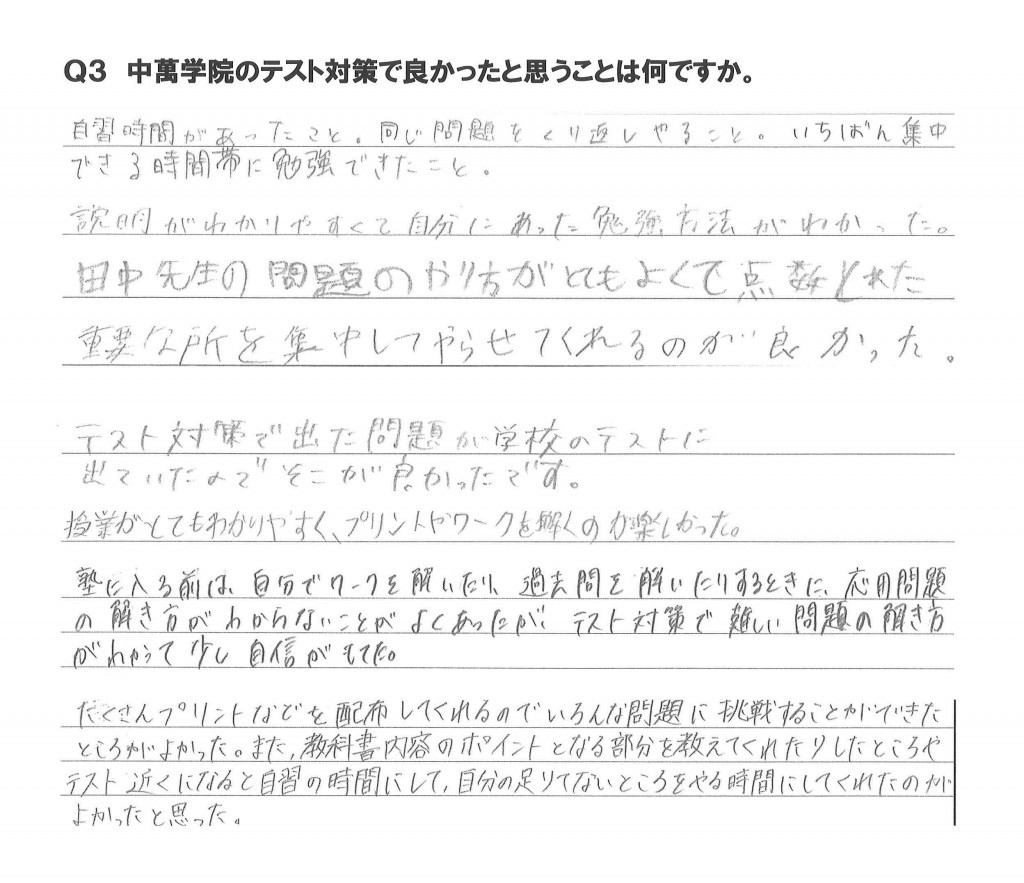 Q3 中萬学院のテスト対策で良かったと思うことは何ですか。
自習時間があったこと。同じ問題をくり返しやること。いちばん集中
できる時間帯に勉強できたこと。
説明がわかりやすくて自分にあった勉強方法がわかった。
田中先生の問題のやり方がとてもよくて点数とれた
重要な所を集中してやらせてくれるのが良かった。
テスト対策で出た問題が学校のテストに
出ていたのでそこが良かったです。
授業がとてもわかりやすく、プリントやワークを解くのが楽しかった。
塾に入る前は、自分でワークを解いたり、過去問を解いたりするときに、応用問題
の解き方がわからないことがよくあったが、テスト対策で難しい問題の解き方
がわかって少し自信がもてた。
たくさんプリントなどを配布してくれるのでいろんな問題に挑戦することができた
ところがよかった。また、教科書内容のポイントとなる部分を教えてくれたりしたところや
テスト近くになると自習の時間にして、自分の足りてないところをやる時間にしてくれたのが
よかったと思った。